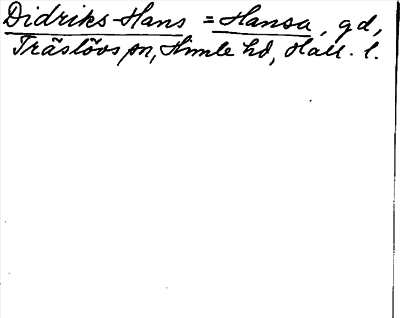 Didriks-Hans = Hansa, gd,
Träslövs sn, Himle hd, Hall. l.